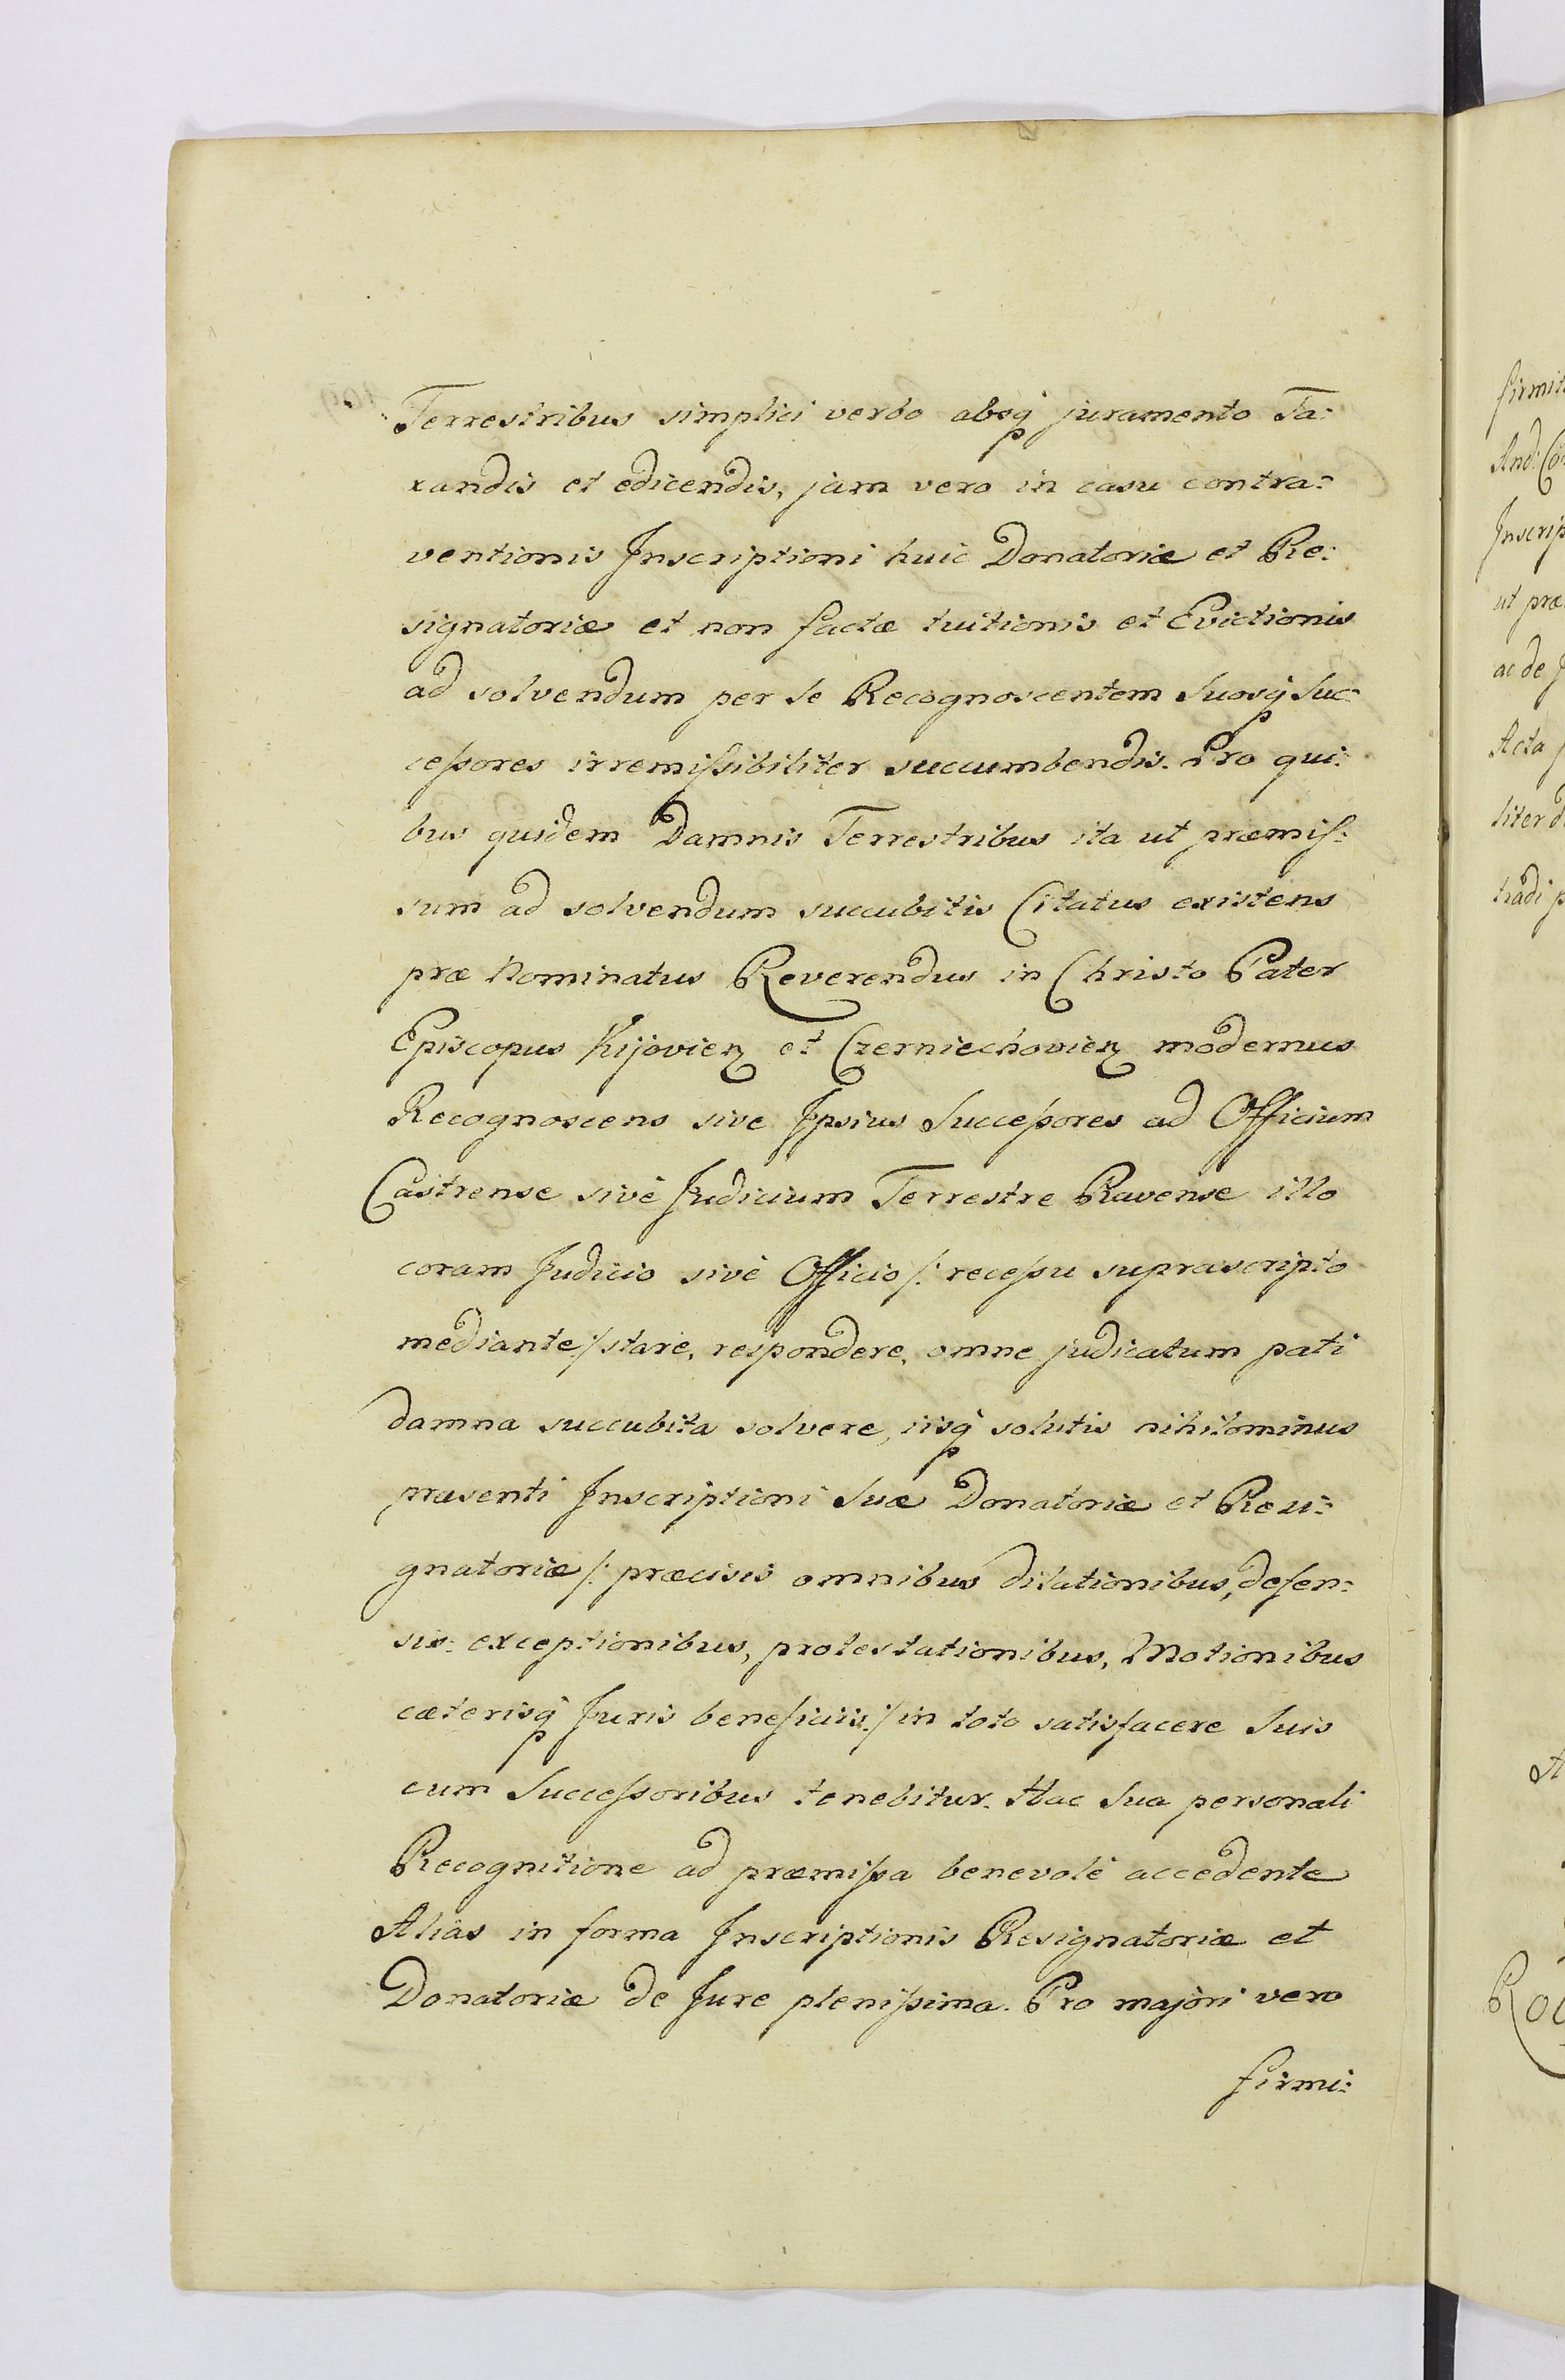 Terrestribus simplici verbo absq juramento Ta:
xandis et edicendis, jam vero in casu contra:
ventionis Inscriptioni huic Donatoriæ et Re:
signatoriæ et non factæ tuitionis et Evictionis
ad solvendum per se Recognoscentem Suosq Suc:
cessores irremissibiliter succumbendis. Pro qui:
bus quidem Damnis Terrestribus ita ut præmis:
sum ad solvendum succubitis Citatus existens
præ Nominatus Reverendus in Christo Pater
Episcopus Kijovien et Czerniechovien modernus
Recognoscens sive Ipsius Successores ad Officium
Castrense sivè Judicium Terrestre Ravense illo
coram Judicio sivè Officio /: recessu suprascripto
mediante :/ stare, respondere, omne judicatum pati
damna succubita solvere, iisq solutis nihilominus
præsenti Inscriptioni Suæ Donatoriæ et Resi:
gnatoriæ /: præcisis omnibus dilationibus, defen:
sis: exceptionibus, protestationibus, Motionibus
cæterisq Juris beneficiis :/ in toto satisfacere Suis
cum Successoribus tenebitur. Hac Sua personali
Recognitione ad præmissa benevolè accedente
Alias in forma Inscriptionis Resignatoriæ et
Donatoriæ de Jure plenissima. Pro majori vero
firmi:
firmit
And: Co
Inscrip
ut præ
ac de J
Acta
liter d
tradi p
A
Roc